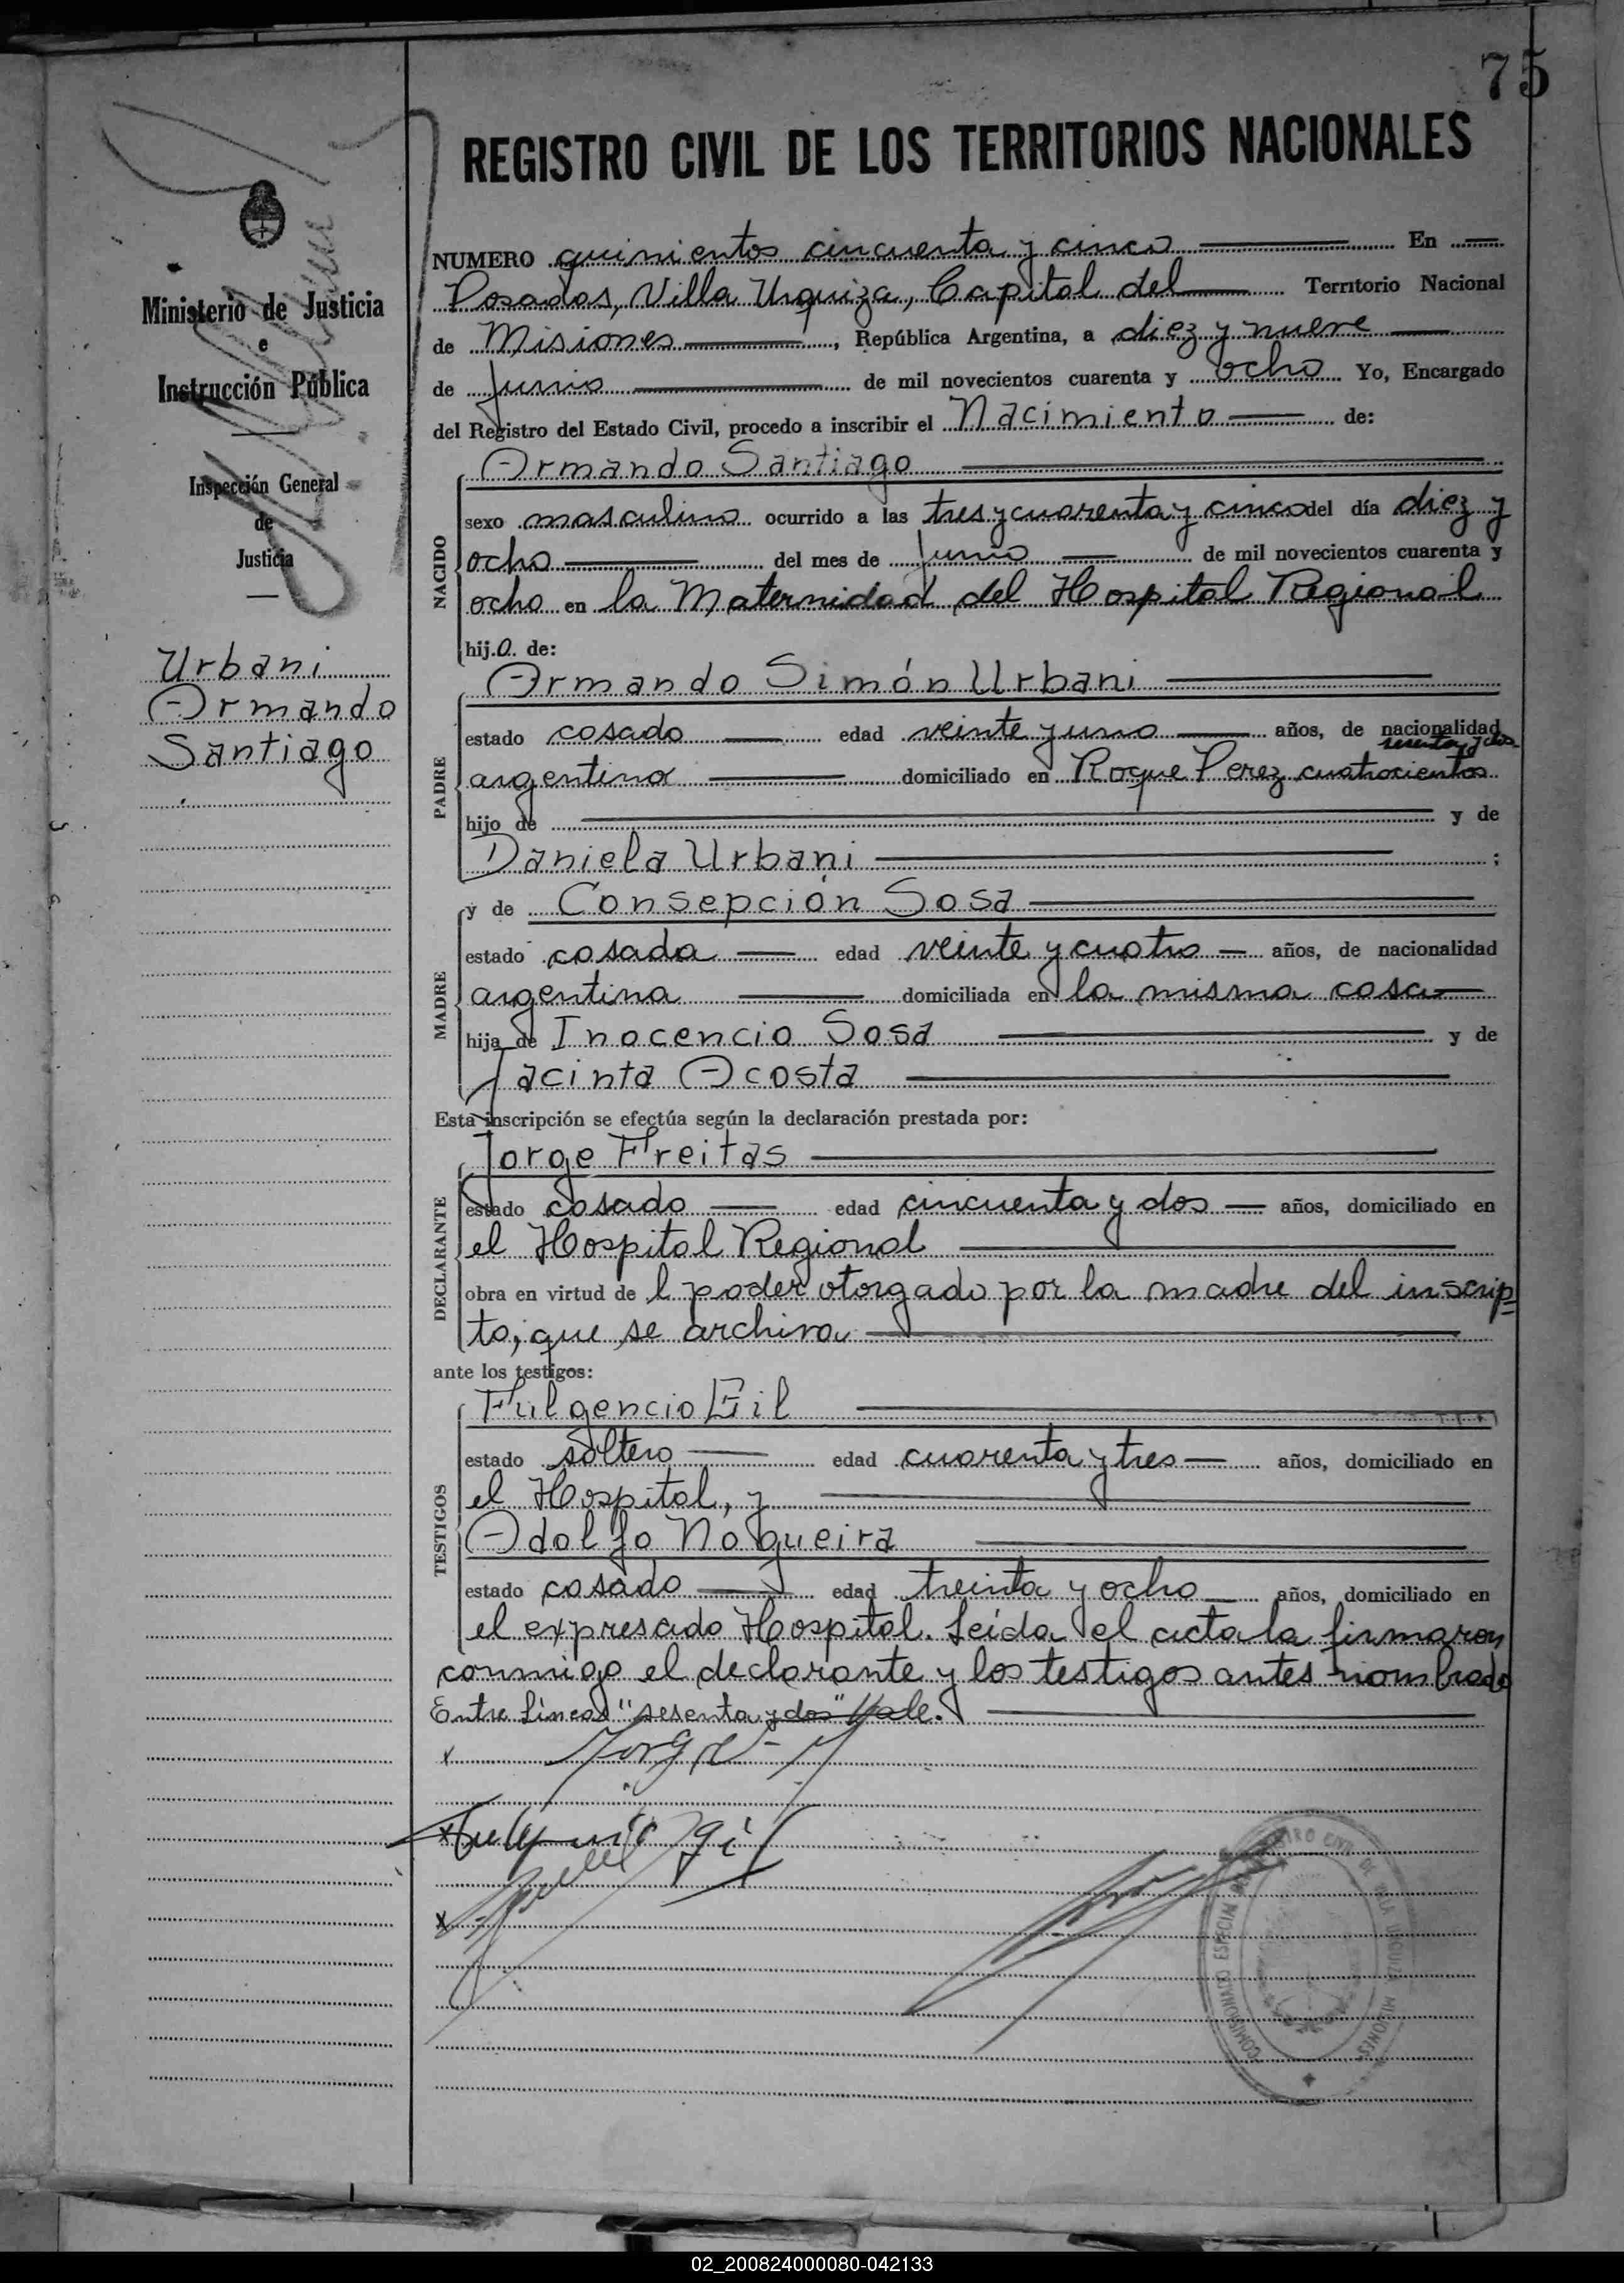 75
REGISTRO CIVIL DE LOS TERRITORIOS NACIONALES
Ministerio de Justicia
e
Instrucción Pública
Inspección General
de
Justicia
Urbani
Armando
Santiago
NUMERO quinientos cincuenta y cinco En
Posadas, Villa Urquiza, Capital del Territorio Nacional
de Misiones, República Argentina, a diez y nueve
de junio de mil novecientos cuarenta y ocho Yo, Encargado
del Registro del Estado Civil, procedo a inscribir el Nacimiento de:
NACIDO
Armando Santiago
sexo masculino ocurrido a las tres y cuarenta y cinco del día diez y
ocho del mes de junio de mil novecientos cuarenta y
ocho en la Maternidad del Hospital Regional
hij.o. de:
PADRE
Armando Simón Urbani
estado casado edad veinte y uno años, de nacionalidad
sesenta y dos
argentina domiciliado en Roque Perez cuatrocientos
hijo de y de
Daniela Urbani ;
MADRE
y de Consepción Sosa
estado casada edad veinte y cuatro años, de nacionalidad
argentina domiciliada en la misma casa
hija de Inocencio Sosa y de
Jacinta Acosta
Esta inscripción se efectúa según la declaración prestada por:
DECLARANTE
Jorge Freitas
estado casado edad cincuenta y dos años, domiciliado en
el Hospital Regional
obra en virtud de l poder otorgado por la madre del inscrip=
to, que se archiva
ante los testigos:
TESTIGOS
Fulgencio Gil
estado soltero edad cuarenta y tres años, domiciliado en
el Hospital, y
Adolfo Nogueira
estado casado edad treinta y ocho años, domiciliado en
el expresado Hospital. Leída el acta la firmaron
conmigo el declarante y los testigos antes nombrado
Entre líneas "sesenta y dos" Vale.
x Jorge
x Fulgencio Gil
x
REGISTRO CIVIL DE VILLA URQUIZA MISIONES
COMISIONADO ESPECIAL
02_200824000080-042133